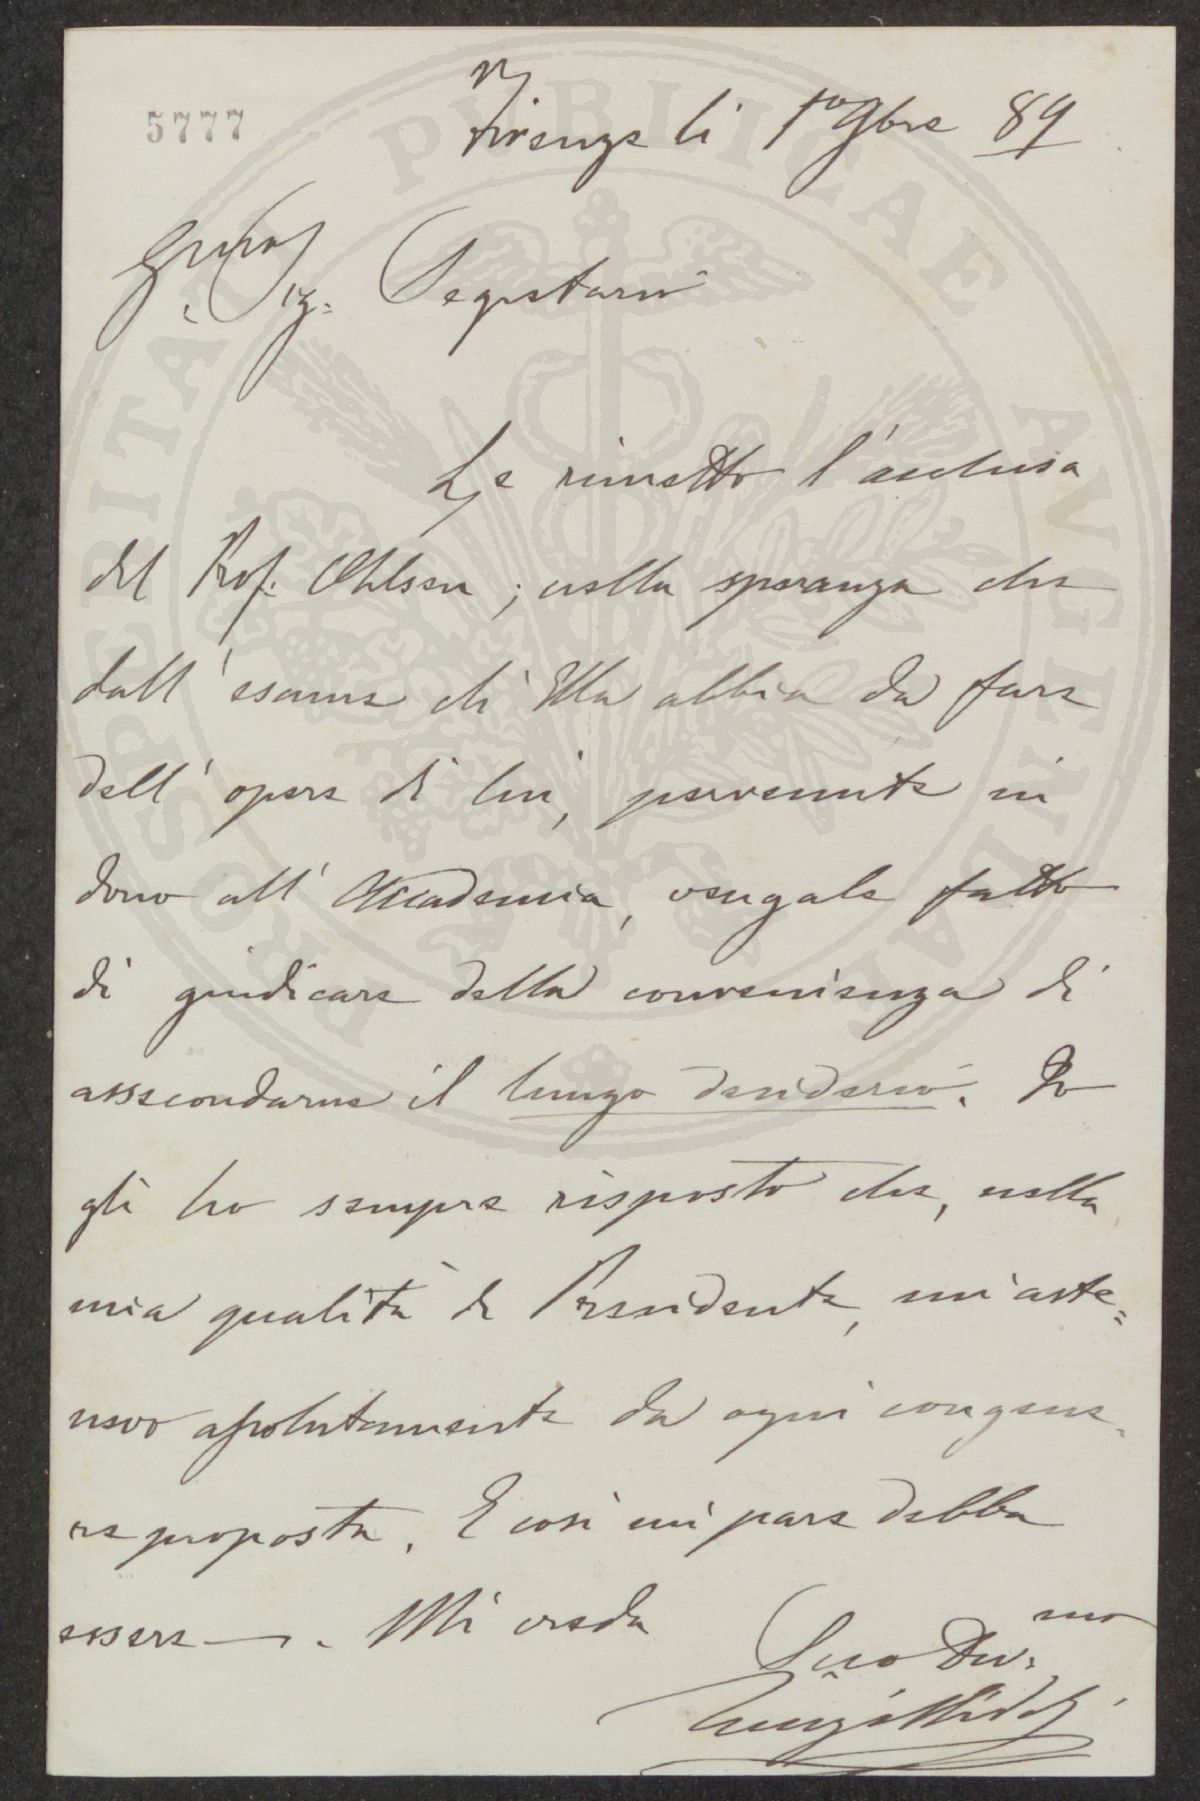 5777
Firenze li 1º 9bre 89
Sig. Segretario
Le rimetto l'acclusa
del Prof. Ohlsen; nella speranza che
dall'esame ch'Ella abbia da fare
dell'opere di lui, pervenute in
dono all'Accademia, vengale fatto
di giudicare della convenienza di
assecondarne il lungo desiderio. Io
gli ho sempre risposto che, nella
mia qualità di Presidente, mi aste=
nevo assolutamente da ogni congene=
re proposta. E così mi pare debba
essere —. Mi creda
Suo Dev.mo
Luigi Ridolfi
PROSPERITATI PVBLICAE AVGENDAE